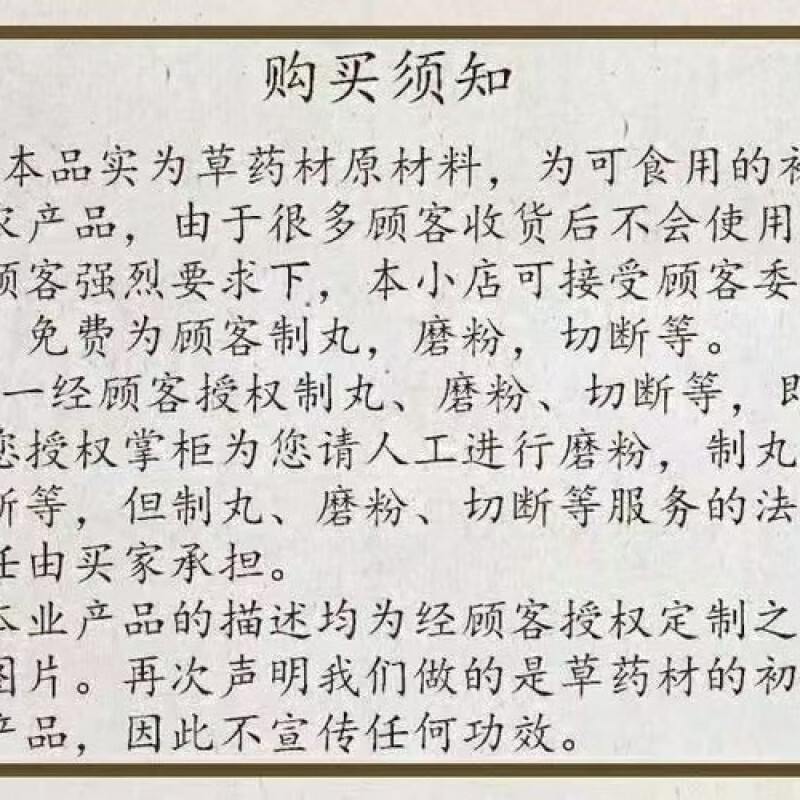 购买须知
本品实为草药材原材料，为可食用的初
农产品，由于很多顾客收货后不会使用
顾客强烈要求下，本小店可接受顾客委
免费为顾客制丸，磨粉，切断等。
一经顾客授权制丸、磨粉、切断等，即
您授权掌柜为您请人工进行磨粉，制丸
断等，但制丸、磨粉、切断等服务的法
任由买家承担。
本业产品的描述均为经顾客授权定制之
图片。再次声明我们做的是草药材的初
产品，因此不宣传任何功效。